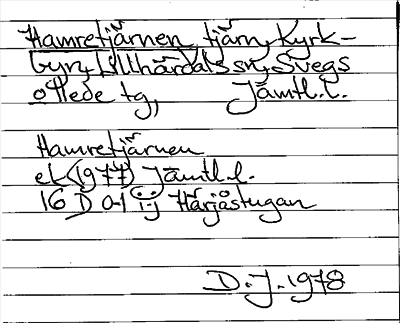 Hamretjärnen, tjärn, Kyrk-
byn, Lillhärdals sn, Svegs
o Hede tg, Jämtl.l.
Hamretjärnen
ek (1977) Jämtl.l.
16 D 0-1 i-j Härjåstugan
D.J. 1978